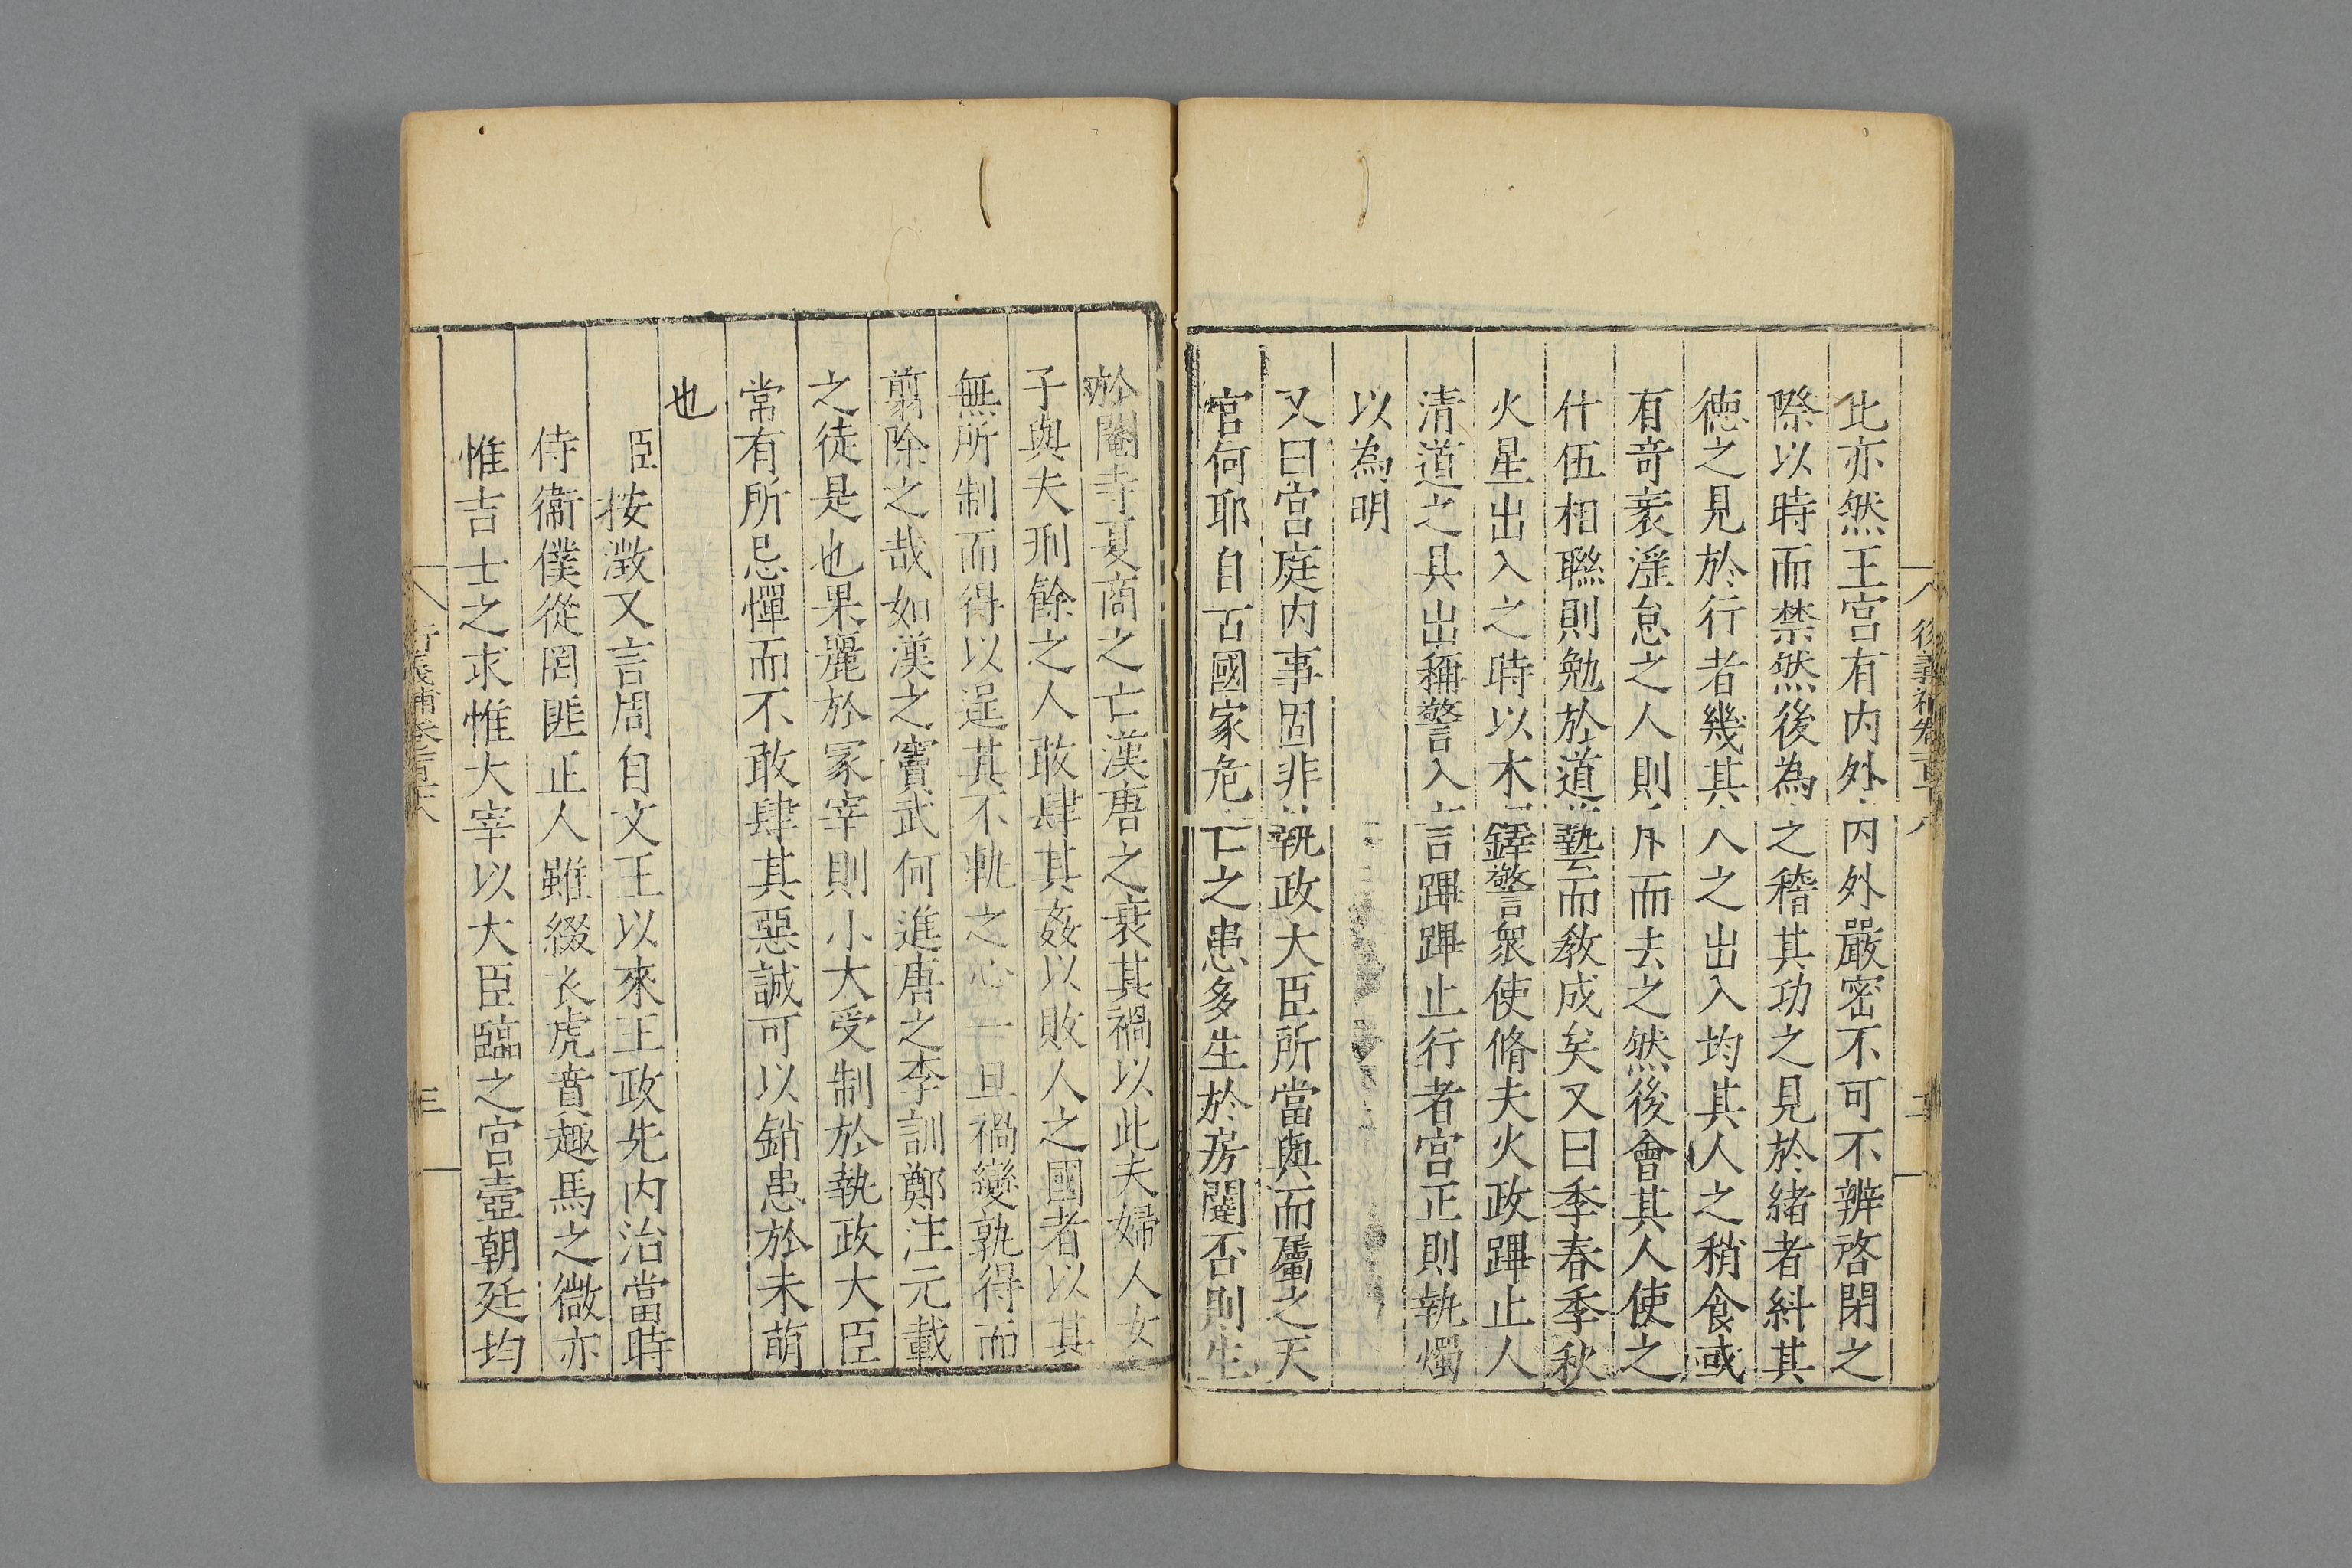 此亦然王宮有内外内外嚴密不可不辨啓閉之
際以時而禁然後為之稽其功之見於緒者糾其
德之見於行者幾其人之出入均其人之稍食或
有竒衺滛怠之人則斥而去之然後會其人使之
什伍相聯則勉於道藝而教成矣又曰季春季秋
火星出入之時以木鐸警衆使脩夫火政蹕止人
清道之具出稱警入言蹕蹕止行者宮正則執燭
以為明
又曰宮庭内事固非執政大臣所當與而屬之天
官何耶自古國家危亡之患多生於房闥否則生
於閹寺夏商之亡漢唐之衰其禍以此夫婦人女
子與夫刑餘之人敢肆其姦以敗人之國者以其
無所制而得以逞其不軌之心一旦禍變孰得而
翦除之哉如漢之竇武何進唐之李訓鄭注元載
之徒是也果麗於冢宰則小大受制於執政大臣
常有所忌憚而不敢肆其惡誠可以銷患於未萌
也
臣按澂又言周自文王以來王政先内治當時
侍衞僕從罔匪正人雖綴衣虎賁趣馬之微亦
惟吉士之求惟大宰以大臣臨之宮壼朝廷均
衍義補卷一百十八
三